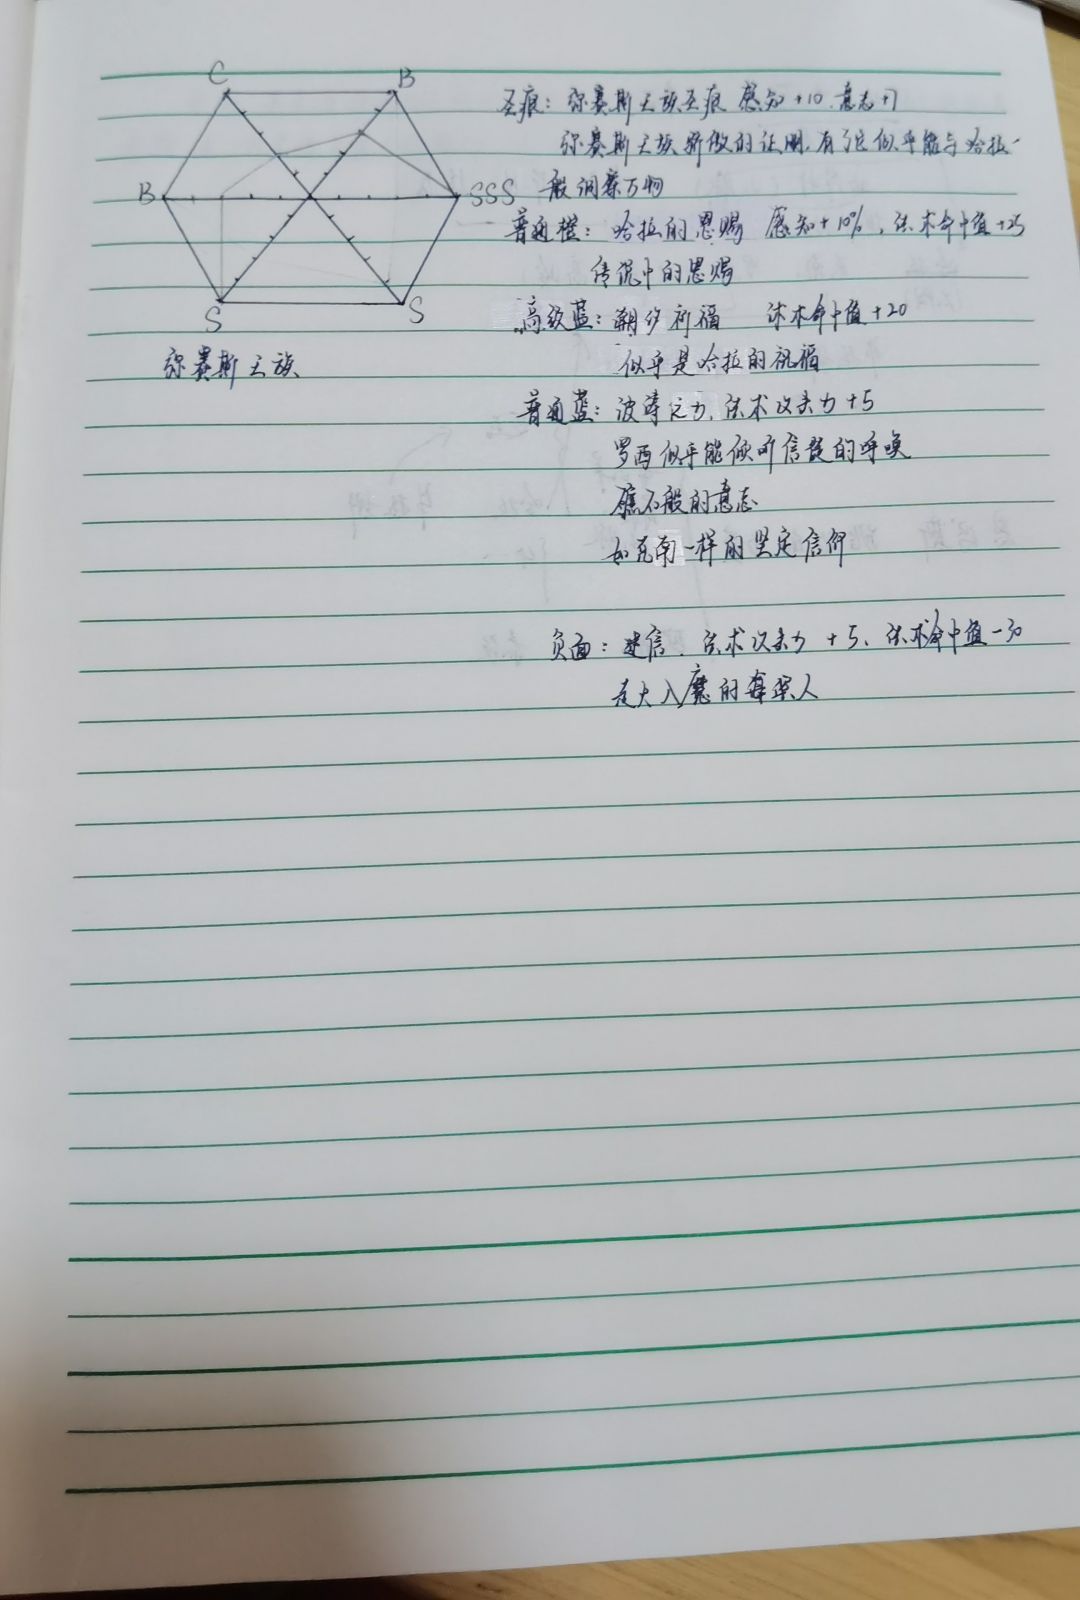 C
B
B
SSS
S
S
弥赛斯王族
圣痕：弥赛斯王族圣痕 感知+10、意志+7
弥赛斯王族骄傲的证明，有了它似乎能与哈拉一
般洞察万物
普通橙：哈拉的恩赐 感知+10%，法术命中值+25
传说中的恩赐
高级蓝：朝夕祈福 法术命中值+20
似乎是哈拉的祝福
普通蓝：波涛之力、法术攻击力+5
罗西似乎能倾听信楚的呼唤
礁石般的意志
如克南一样的坚定信仰
负面：迷信、法术攻击力+5、法术命中值-30
走火入魔的 人